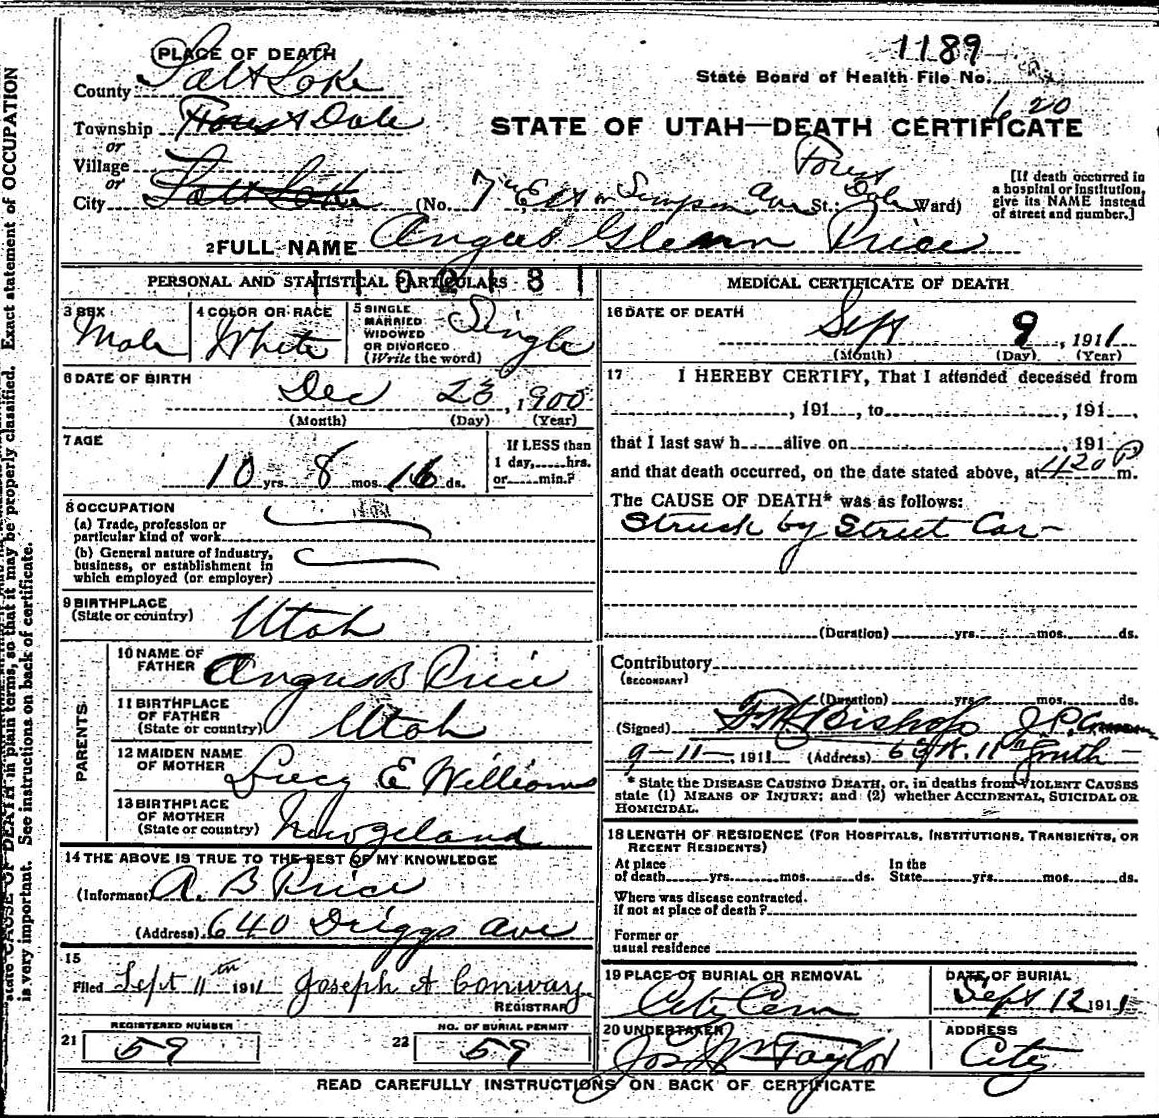 1189
PLACE OF DEATH
State Board of Health File No.
County Salt Lake
620
Township Forest Dale
STATE OF UTAH—DEATH CERTIFICATE
or
Village
or
City Salt Lake (No. 7th East on Simpson Ave St.: Forest Dale Ward)
[If death occurred in a hospital or institution, give its NAME instead of street and number.]
2 FULL NAME Angus Glenn Price
PERSONAL AND STATISTICAL PARTICULARS
3 SEX Male
4 COLOR OR RACE White
5 SINGLE MARRIED WIDOWED OR DIVORCED (Write the word) Single
6 DATE OF BIRTH
Dec 23, 1900
(Month) (Day) (Year)
7 AGE
10 yrs. 8 mos. 16 ds.
If LESS than
1 day,......hrs.
or......min.?
8 OCCUPATION
(a) Trade, profession or
particular kind of work
(b) General nature of industry,
business, or establishment in
which employed (or employer)
9 BIRTHPLACE
(State or country) Utah
PARENTS
10 NAME OF
FATHER Angus B Price
11 BIRTHPLACE
OF FATHER
(State or country) Utah
12 MAIDEN NAME
OF MOTHER Lucy E Williams
13 BIRTHPLACE
OF MOTHER
(State or country) Newzeland
14 THE ABOVE IS TRUE TO THE BEST OF MY KNOWLEDGE
(Informant) A. B Price
(Address) 640 Driggs Ave
15
Filed Sept 11th 1911 Joseph A Conway
REGISTRAR
REGISTERED NUMBER
21 59
NO. OF BURIAL PERMIT
22 59
MEDICAL CERTIFICATE OF DEATH
16 DATE OF DEATH
Sept 9, 1911
(Month) (Day) (Year)
17 I HEREBY CERTIFY, That I attended deceased from
, 191 , to , 191 ,
that I last saw h alive on 191
and that death occurred, on the date stated above, at 420 P m.
The CAUSE OF DEATH* was as follows:
Struck by Street Car
(Duration) yrs. mos. ds.
Contributory
(SECONDARY)
(Duration) yrs. mos. ds.
(Signed) F. M. Bishop J.P.
9-11-, 1911 (Address)
* State the DISEASE CAUSING DEATH, or, in deaths from VIOLENT CAUSES
state (1) MEANS OF INJURY; and (2) whether ACCIDENTAL, SUICIDAL OR
HOMICIDAL.
18 LENGTH OF RESIDENCE (FOR HOSPITALS, INSTITUTIONS, TRANSIENTS, OR
RECENT RESIDENTS)
At place
of death yrs. mos. ds.
In the
State yrs. mos. ds.
Where was disease contracted.
if not at place of death?
Former or
usual residence
19 PLACE OF BURIAL OR REMOVAL
City Cem
DATE OF BURIAL
Sept 12 1911
20 UNDERTAKER
Jos Wm Taylor
ADDRESS
City
READ CAREFULLY INSTRUCTIONS ON BACK OF CERTIFICATE
state CAUSE OF DEATH in plain terms, so that it may be properly classified. Exact statement of OCCUPATION
is very important. See instructions on back of certificate.